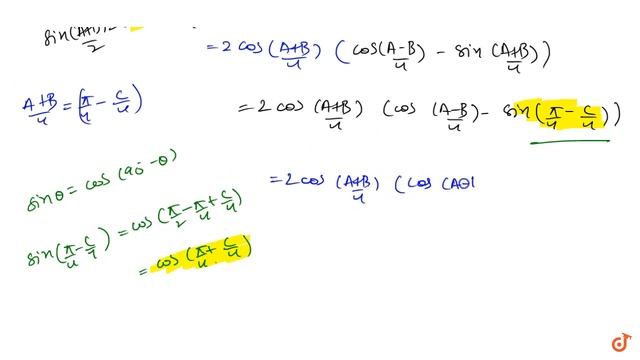 sin(A+B)/2
= 2 cos (A+B)/4 ( cos(A-B)/4 - sin (A+B)/4 )
A+B/4 = (π/4 - C/4)
= 2 cos (A+B)/4 (cos (A-B)/4 - sin(π/4 - C/4))
sinθ = cos (90° -θ)
= 2 cos (A+B)/4 (cos (A
sin(π/4 - C/4) = cos(π/2 - π/4 + C/4)
= cos (π/4 + C/4)